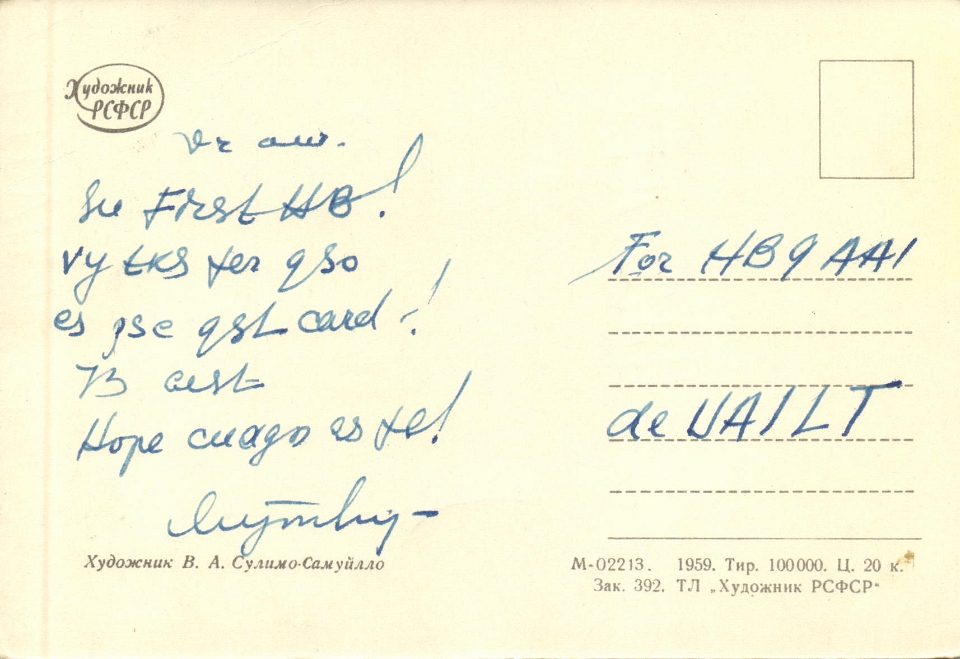 Художник
РСФСР
Dr om.
First HB!
vy tks fer qso
es pse qsl card!
73 
Hope cuagn es fe!
For HB9AAI
de UA1LT
Художник В. А. Сулимо-Самуйлло
М-02213. 1959. Тир. 100000. Ц. 20 к.
Зак. 392. ТЛ „Художник РСФСР“